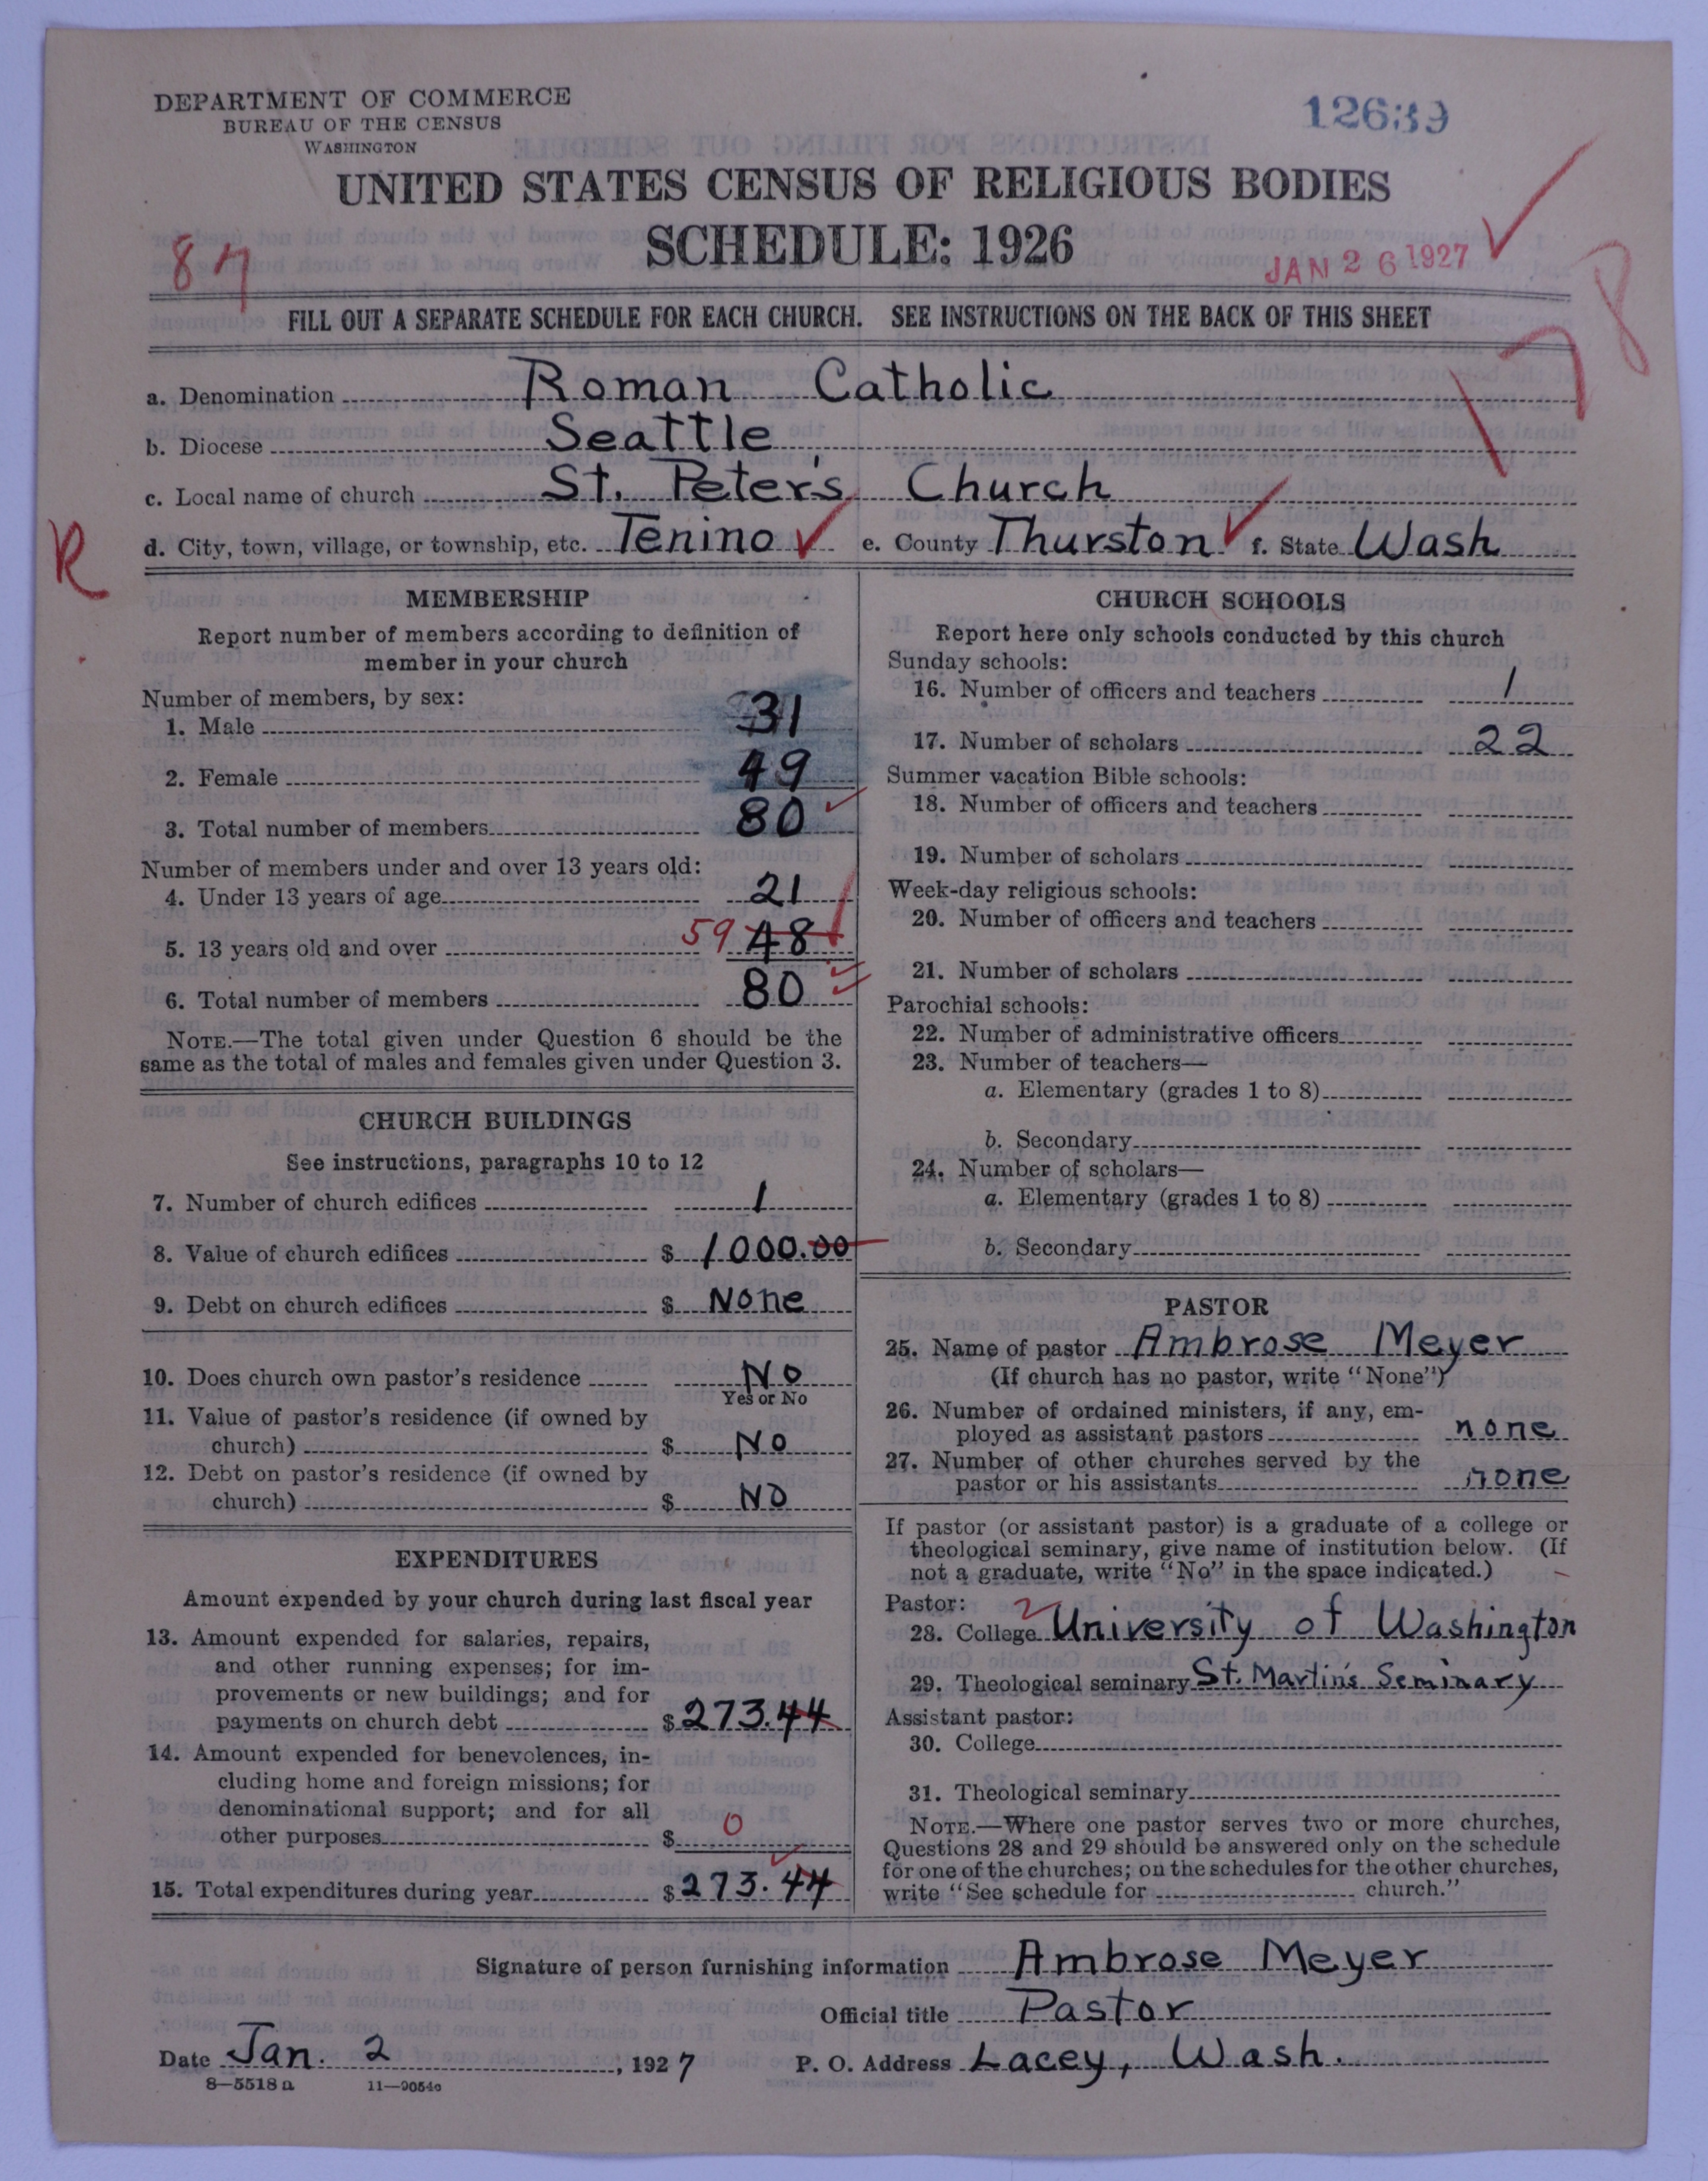 DEPARTMENT OF COMMERCE
BUREAU OF THE CENSUS
WASHINGTON
12639
UNITED STATES CENSUS OF RELIGIOUS BODIES
SCHEDULE: 1926
JAN 26 1927
FILL OUT A SEPARATE SCHEDULE FOR EACH CHURCH. SEE INSTRUCTIONS ON THE BACK OF THIS SHEET
a. Denomination Roman Catholic
b. Diocese Seattle
c. Local name of church St. Peter's Church
R
d. City, town, village, or township, etc. Tenino e. County Thurston f. State Wash
MEMBERSHIP
Report number of members according to definition of
member in your church
Number of members, by sex:
1. Male 31
2. Female 49
3. Total number of members 80
Number of members under and over 13 years old:
4. Under 13 years of age 21
5. 13 years old and over 59 48
6. Total number of members 80
NOTE.—The total given under Question 6 should be the
same as the total of males and females given under Question 3.
CHURCH BUILDINGS
See instructions, paragraphs 10 to 12
7. Number of church edifices 1
8. Value of church edifices $ 1000.00
9. Debt on church edifices $ None
10. Does church own pastor's residence No
Yes or No
11. Value of pastor's residence (if owned by
church) $ No
12. Debt on pastor's residence (if owned by
church) $ No
EXPENDITURES
Amount expended by your church during last fiscal year
13. Amount expended for salaries, repairs,
and other running expenses; for im-
provements or new buildings; and for
payments on church debt $ 273.44
14. Amount expended for benevolences, in-
cluding home and foreign missions; for
denominational support; and for all
other purposes $ 0
15. Total expenditures during year $ 273.44
CHURCH SCHOOLS
Report here only schools conducted by this church
Sunday schools:
16. Number of officers and teachers 1
17. Number of scholars 22
Summer vacation Bible schools:
18. Number of officers and teachers
19. Number of scholars
Week-day religious schools:
20. Number of officers and teachers
21. Number of scholars
Parochial schools:
22. Number of administrative officers
23. Number of teachers—
a. Elementary (grades 1 to 8)
b. Secondary
24. Number of scholars—
a. Elementary (grades 1 to 8)
b. Secondary
PASTOR
25. Name of pastor Ambrose Meyer
(If church has no pastor, write "None")
26. Number of ordained ministers, if any, em-
ployed as assistant pastors none
27. Number of other churches served by the
pastor or his assistants none
If pastor (or assistant pastor) is a graduate of a college or
theological seminary, give name of institution below. (If
not a graduate, write "No" in the space indicated.)
Pastor:
28. College University of Washington
29. Theological seminary St. Martin's Seminary
Assistant pastor:
30. College
31. Theological seminary
NOTE.—Where one pastor serves two or more churches,
Questions 28 and 29 should be answered only on the schedule
for one of the churches; on the schedules for the other churches,
write "See schedule for church."
Signature of person furnishing information Ambrose Meyer
Official title Pastor
Date Jan. 2, 1927 P. O. Address Lacey, Wash.
8—5518 a 11—9054a